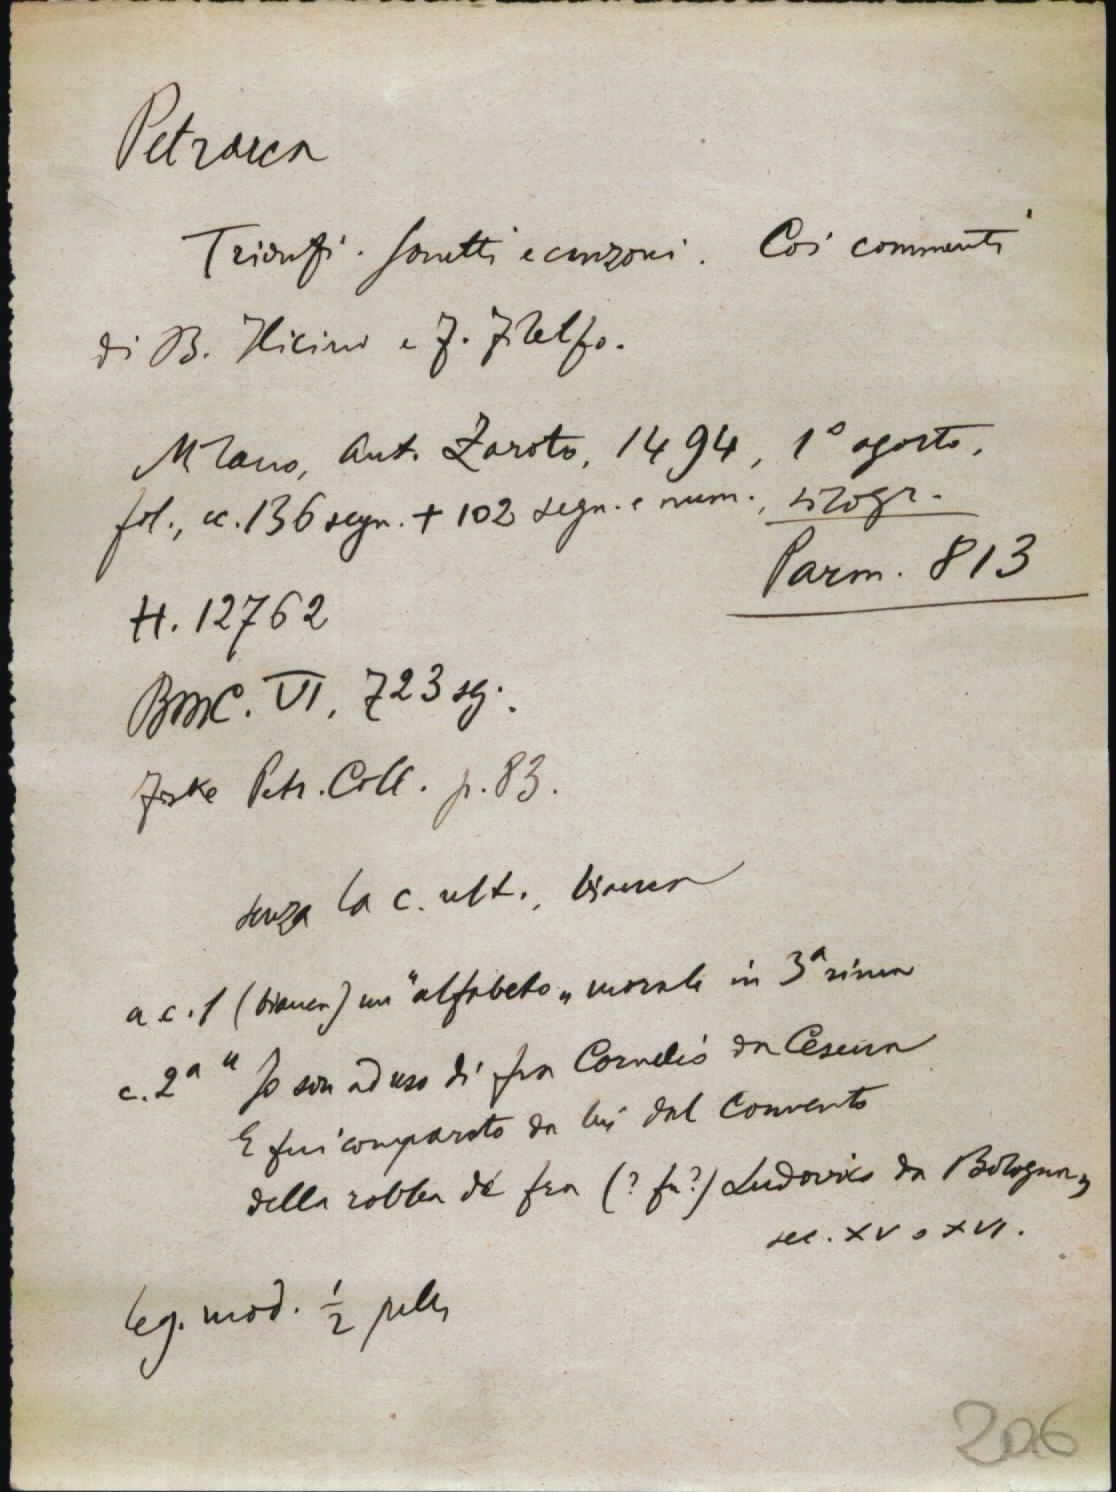 Petrarca
Trionfi. Sonetti e canzoni. Coi commenti
di B. Ilicino e F. Filelfo.
Milano, Ant. Zaroto, 1494, 1° agosto,
fol., cc. 136 segn. + 102 segn. e num., silogr.
Parm. 813
H. 12762
BMC. VI, 723 sg.
Fiske Petr. Coll. p. 83.
senza la c. ult., bianca
a c. 1 (bianca) un "alfabeto" morale in 3ª rima
c. 2ª "Io son ad uso di fra Cornelio da Cesena
E fui comparato da lui dal Convento
della robba de fra (? fu?) Ludovico da Bologna"
sec. XV o XVI.
leg. mod. ½ pelle
206